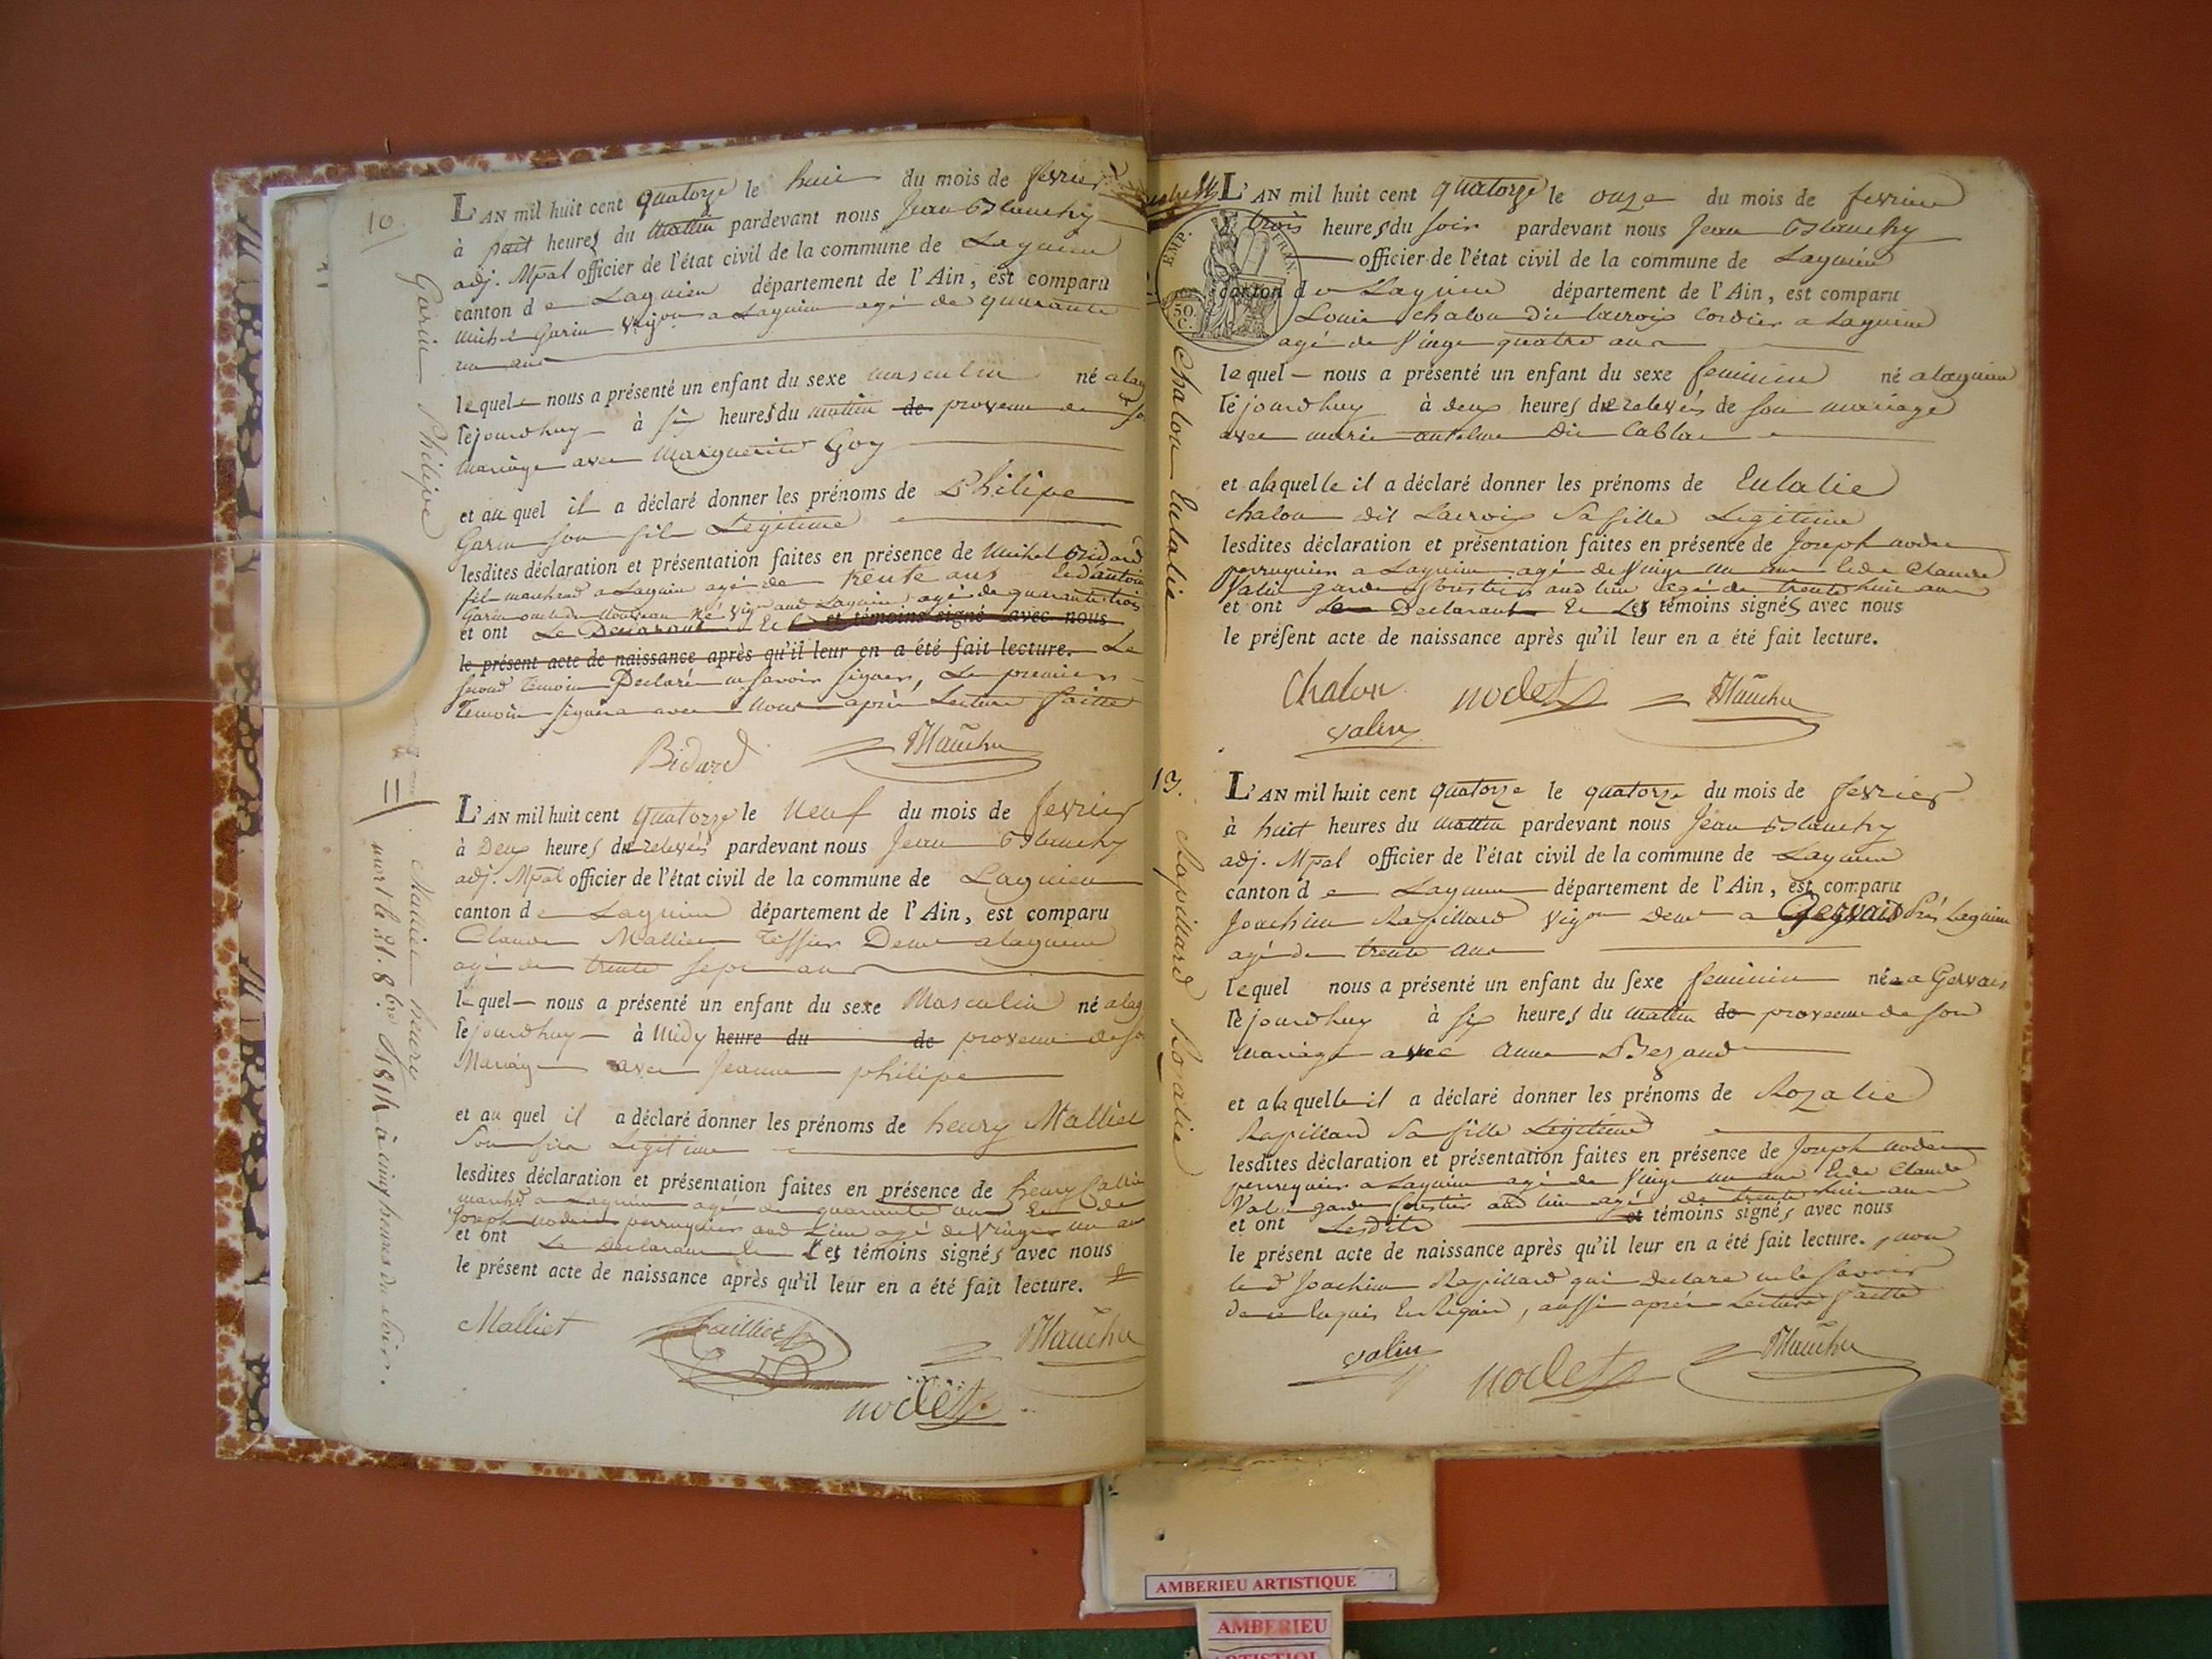 10.
Garin Philipe
L'AN mil huit cent quatorze le huit du mois de fevrier
à huit heures du mattin pardevant nous Jean Blanchy
adj. Mpal officier de l'état civil de la commune de Lagnieu
canton de Lagnieu département de l'Ain, est comparu
Michel Garin Vigon a Lagnieu agé de quarante
un ans
lequel nous a présenté un enfant du sexe masculin né a lag
cejourdhuy à six heures du mattin de provenu de so
mariage avec Marguerite Goy
et au quel il a déclaré donner les prénoms de Philipe
Garin son fils Legitime
lesdites déclaration et présentation faites en présence de Michel Bidard
fils marchand a Lagnieu agé de trente ans Et d'antoine
Garin Vigon aud Lagnieu agé de quarante trois
et ont Le Declarant Et et témoins signé avec nous
le présent acte de naissance après qu'il leur en a été fait lecture. Le
second Temoin Declaré ne savoir signer, Le premier
Temoin signera avec Nous après Lecture faitte
Bidard Blanchy
11
Malliet henry
mort le 21. 8bre 1814 à cinq heures du soir.
L'AN mil huit cent quatorze le neuf du mois de fevrier
à Deux heures du relevés pardevant nous Jean Blanchy
adj. Mpal officier de l'état civil de la commune de Lagnieu
canton de Lagnieu département de l'Ain, est comparu
Claude Malliet Tissier Demt a lagnieu
agé de trente sept ans
lequel nous a présenté un enfant du sexe Masculin né a lag
cejourdhuy à Midy heure du de provenu de so
Mariage avec Jeanne philipe
et au quel il a déclaré donner les prénoms de henry Malliet
Son fils Legitime
lesdites déclaration et présentation faites en présence de henry
marchd a Lagnieu agé de quarante ans Et de
Joseph nodet perruquier aud Lieu agé de Vingt un an
et ont Le Declarant Et Les témoins signés avec nous
le présent acte de naissance après qu'il leur en a été fait lecture.
Malliet Blanchy
nodet
Chalon Eulalie
EMP. FRAN.
50. C.
L'AN mil huit cent quatorze le onze du mois de fevrier
à trois heures du soir pardevant nous Jean Blanchy
officier de l'état civil de la commune de Lagnieu
canton de Lagnieu département de l'Ain, est comparu
Louis chalon dit lacroix Cordier a Lagnieu
agé de Vingt quatre ans
lequel nous a présenté un enfant du sexe feminin né a lagnieu
cejourdhuy à deux heures de relevés de son mariage
avec marie antelme Dit Cablan
et alaquelle il a déclaré donner les prénoms de Eulalie
chalon dit Lacroix Sa fille Legitime
lesdites déclaration et présentation faites en présence de Joseph nodet
perruquier a Lagnieu agé de Vingt un ans Et de Claude
Valin garde forestier aud lieu agé de trente huit ans
et ont Le Declarant Et Les témoins signés avec nous
le présent acte de naissance après qu'il leur en a été fait lecture.
Chalon nodet Blanchy
valin
13.
Rapillard Rozalie
L'AN mil huit cent quatorze le quatorze du mois de fevrier
à huit heures du mattin pardevant nous Jean Blanchy
adj. Mpal officier de l'état civil de la commune de Lagnieu
canton de Lagnieu département de l'Ain, est comparu
Joachim Rapillard Vigon Demt a Gervais Près Lagnieu
agé de trente ans
lequel nous a présenté un enfant du sexe feminin née a Gervais
cejourdhuy à six heures du mattin de provenue de son
mariage avec Anne
et alaquelle il a déclaré donner les prénoms de Rozalie
Rapillard Sa fille Legitime
lesdites déclaration et présentation faites en présence de Joseph nodet
perruquier a Lagnieu agé de Vingt un ans Et de Claude
Valin garde forestier aud lieu agé de trente huit ans
et ont Lesdits et témoins signés avec nous
le présent acte de naissance après qu'il leur en a été fait lecture. non
le d Joachim Rapillard qui declare ne le savoir
de ce Enquis, aussi après Lecture faitte
valin nodet Blanchy
AMBERIEU ARTISTIQUE
AMBERIEU
ARTISTIQUE